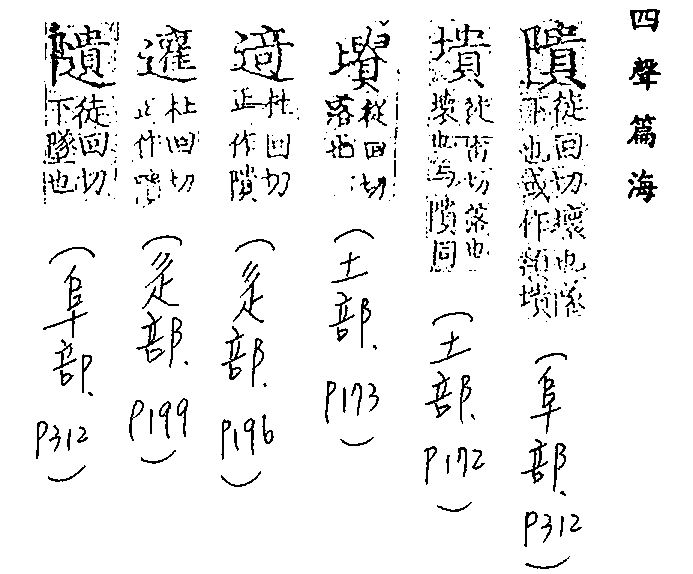 四聲篇海
隤 徒回切壞也墜下也或作頹墤
(阜部、P312)
墤 徒雷切落也壞也与隤同
(土部、P172)
徒回切落也
(土部、P173)
杜回切正作隤
(辵部、P196)
杜回切正作隤
(辵部、P199)
徒回切下墜也
(阜部、P312)